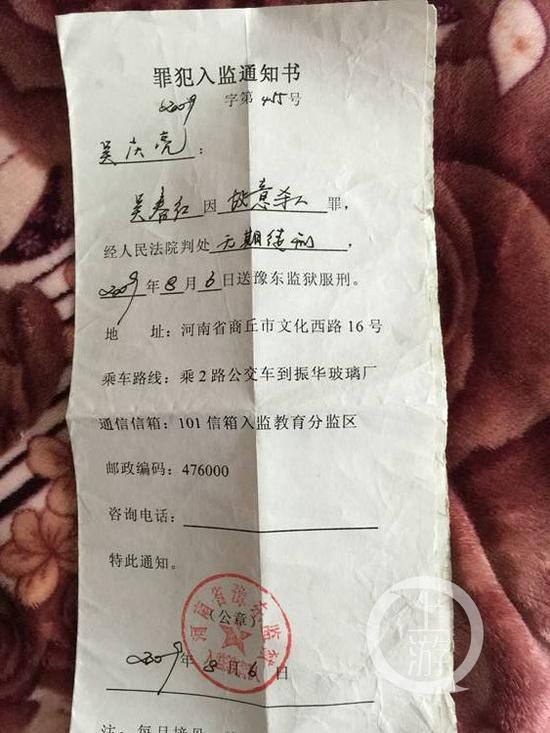 罪犯入监通知书
2009 字第 415 号
吴庆亮：
吴春红因故意杀人罪，
经人民法院判处无期徒刑，
2009年8月6日送豫东监狱服刑。
地 址：河南省商丘市文化西路 16 号
乘车路线：乘 2 路公交车到振华玻璃厂
通信信箱：101 信箱入监教育分监区
邮政编码：476000
咨询电话：
特此通知。
（公章）
河南省豫东监狱
2009年8月6日
注：每月接见
上游